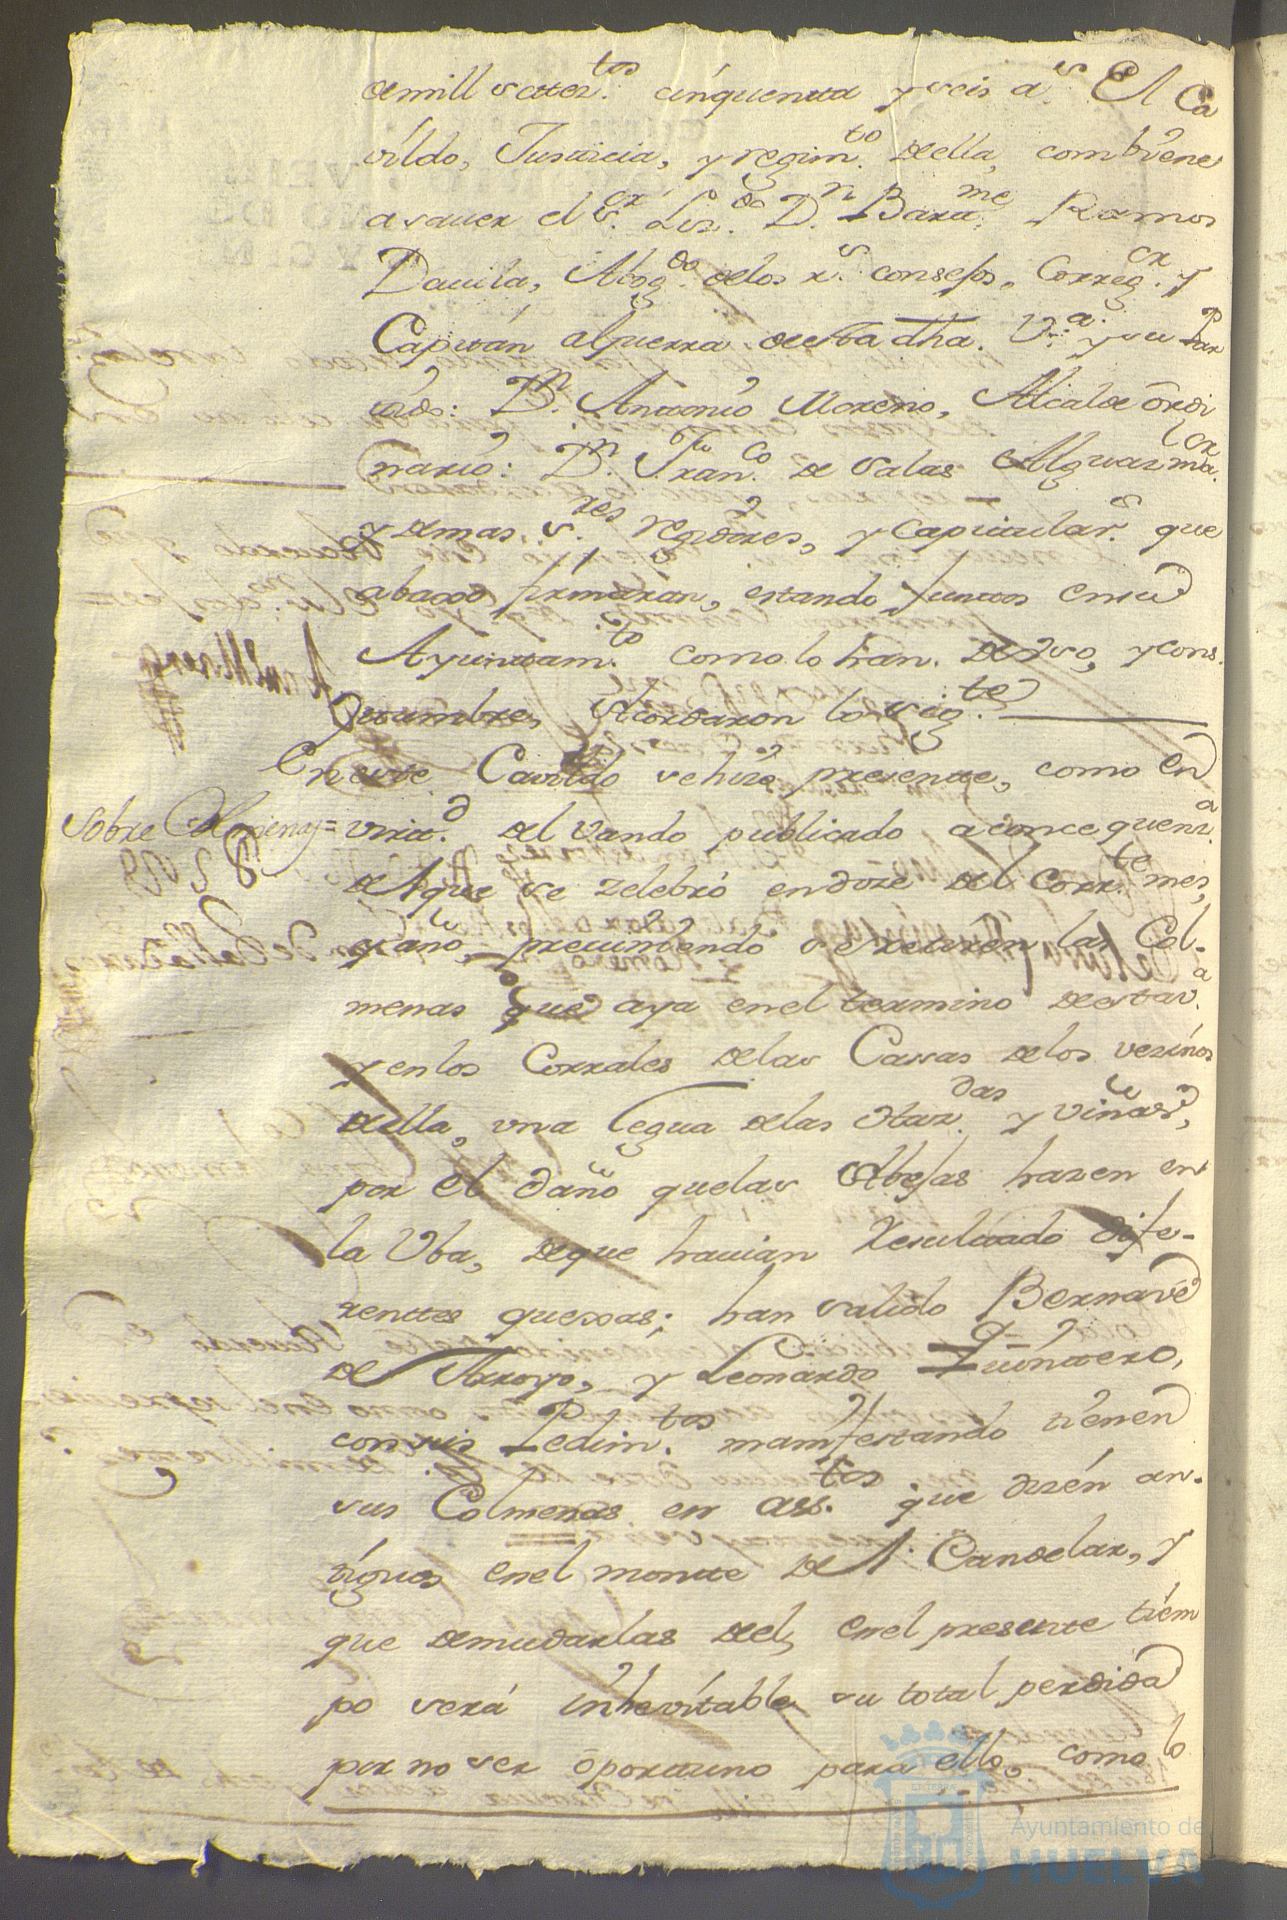 de mill setez.tos cinquentta y seis a.s El Ca
vildo, Justticia, y regim.to della, combiene
a sauer el S.or Liz.do D.n Bartt.me Ramos
Dauila, Abog.do delos r.s consejos, Correg.or y
Capitán alguerra desta dha. V.a y su Par
tido: D.n Antonio Moreno, Alcalde ordi
nario: D.n Fran.co de Salas Alguazil ma.or
y demas S.res regidores, y Capitular.s que
abaxo firmaran, estando Juntos en su
Ayuntam.to como lo han de vso, y cos
tumbre, Acordaron lo sig.te
En este Cavildo se hizo presente, como en
Sobre Colmenas = virtt.d del Vando publicado a consequenz.a
del que se zelebró en doze del Corr.te mes,
y año, preciniendo se retiren las Col-
menas que aya en el termino desta v.a
y en los Corrales delas Casas delos vezinos
della, vna legua delas Estac.das y viñas,
por el daño quelas Abejas hazen en
la Vba, deque hauian Resultado dife-
renttes quexas; han salido Bernave
de Arroyo, y Leonardo Quintero,
con sus Pedim.tos manifestando tienen
sus Colmenas en ass.tos que dizen an-
tiguos en el montte del Candelar, y
que demudarlas del, en el presente tiem
po será inhevitable su total perdida
por no ser oportuno para ello, como lo
Ayuntamiento de
HUELVA